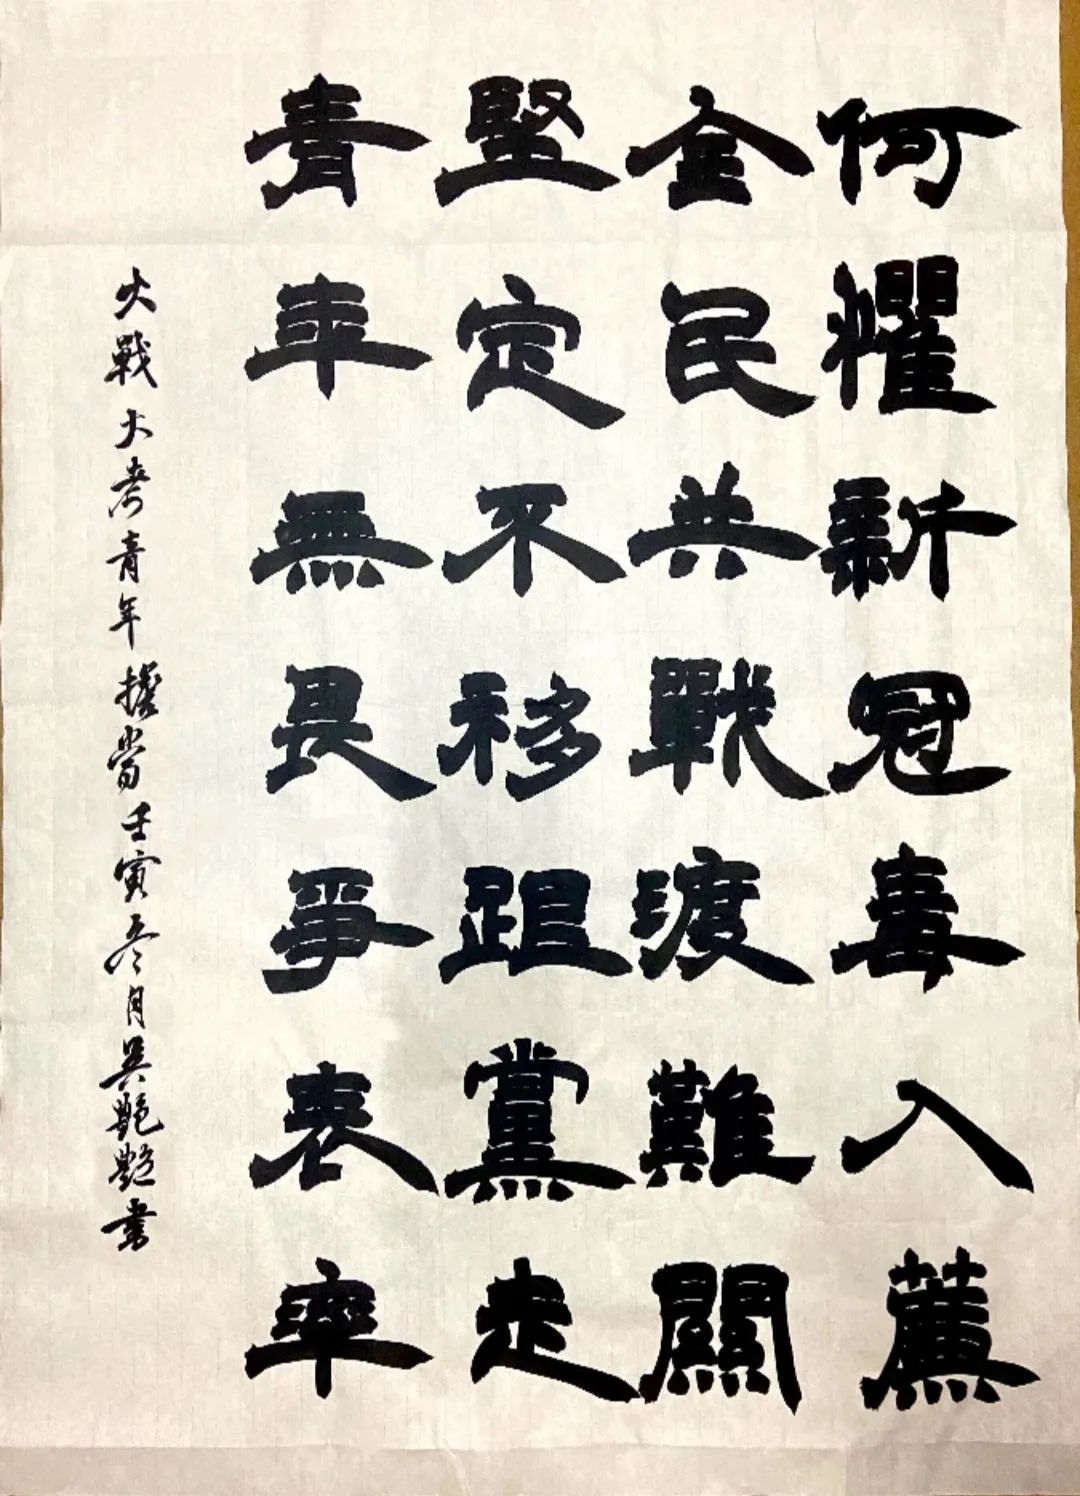 何懼新冠毒入
全民共戰渡難關
堅定不移跟黨走
青年無畏爭表率
大戰大考青年擔當壬寅冬月吳艷艷書